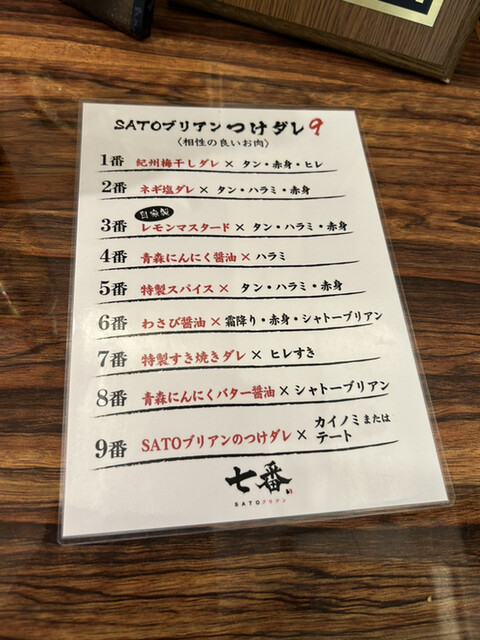 SATOブリアンつけダレ9
〈相性の良いお肉〉
1番 紀州梅干しダレ × タン・赤身・ヒレ
2番 ネギ塩ダレ × タン・ハラミ・赤身
自家製
3番 レモンマスタード × タン・ハラミ・赤身
4番 青森にんにく醤油 × ハラミ
5番 特製スパイス × タン・ハラミ・赤身
6番 わさび醤油 × 霜降り・赤身・シャトーブリアン
7番 特製すき焼きダレ × ヒレすき
8番 青森にんにくバター醤油 × シャトーブリアン
9番 SATOブリアンのつけダレ × カイノミまたは
テート
七番
SATOブリアン